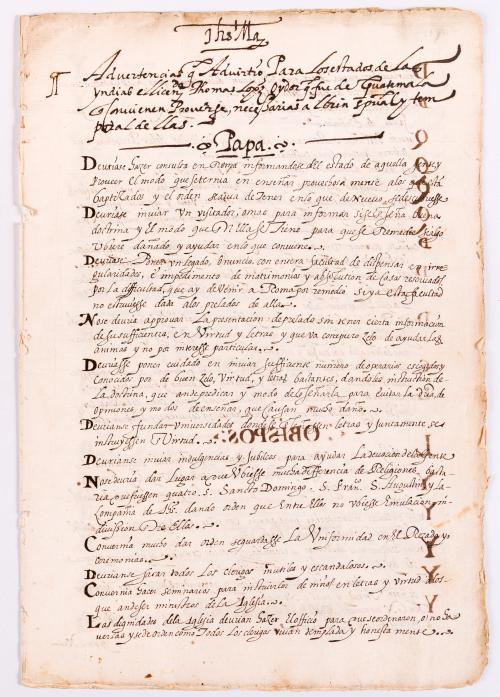 Jhs Ma
Advertencias q Advirtio Para los estados de las
yndias el licen.do Thomas Lopez Oydor q fue de Guatemala
q convienen Proverse, necesarias al bien spiritual y tem
poral de ellas.
Papa.
Devriase hazer consulta en Roma informandose del estado de aquella
Proveer el modo que se ternia en enseñar provechosamente a los
baptizados y el orden que se avia de tener en lo que de nuevo
Devriase inviar un visitador, o mas para informar si se les enseña buena
doctrina y el modo que en ella se tiene para que se remedie si algo
ubiere dañado y ayudar en lo que conviene.
Devriase Poner un legado, o nuncio con entera facultad de dispensar en irre
gularidades, e impedimentos de matrimonios y absolution de casos reservados
por la difficultad que ay de venir a Roma por remedio si ya esta facultad
no estuviesse dada a los prelados de alla.
No se devria approvar la presentacion de prelado sin tener cierta informacion
de su sufficientia, en Virtud y letras y que va con puro zelo de ayudar las
animas y no por interesse particular.
Devriesse poner cuidado en inviar sufficiente numero de operarios escogidos y
Conocidos por de buen zelo, Virtud, y letras bastantes, dandoles instruction de
la doctrina, que an de predicar y modo de enseñarla para evitar la div. de
opiniones y modos de enseñar, que causan mucho daño.
Devrianse fundar universidades donde se enseñen letras y juntamente se
instruyessen en Virtud.
OBISPOS
Devrianse inviar indulgencias y jubileos para ayudar la devocion de la gente
No se devria dar lugar a que ubiesse mucha differencia de Religiones, basta
ria que fuessen quatro, S. Sancto Domingo. S. Fran.co S. Augustin y la
Compañia de Jhs. dando orden que entre ellas no ubiesse emulacion, ni
division de ellas.
Convernia mucho dar orden se guardasse la Uniformidad en el Rezado y
ceremonias.
Devrianse sacar todos los clerigos inutiles y escandalosos.
Convernia hazer seminarios para instruirlos de niños en letras y virtud a los
que an de ser ministros de la Iglesia.
Las dignidades de la Iglesia devrian hazer el officio para que se ordenaron, o no ha
verlas y se de orden como todos los clerigos vivan templada y honestamente.